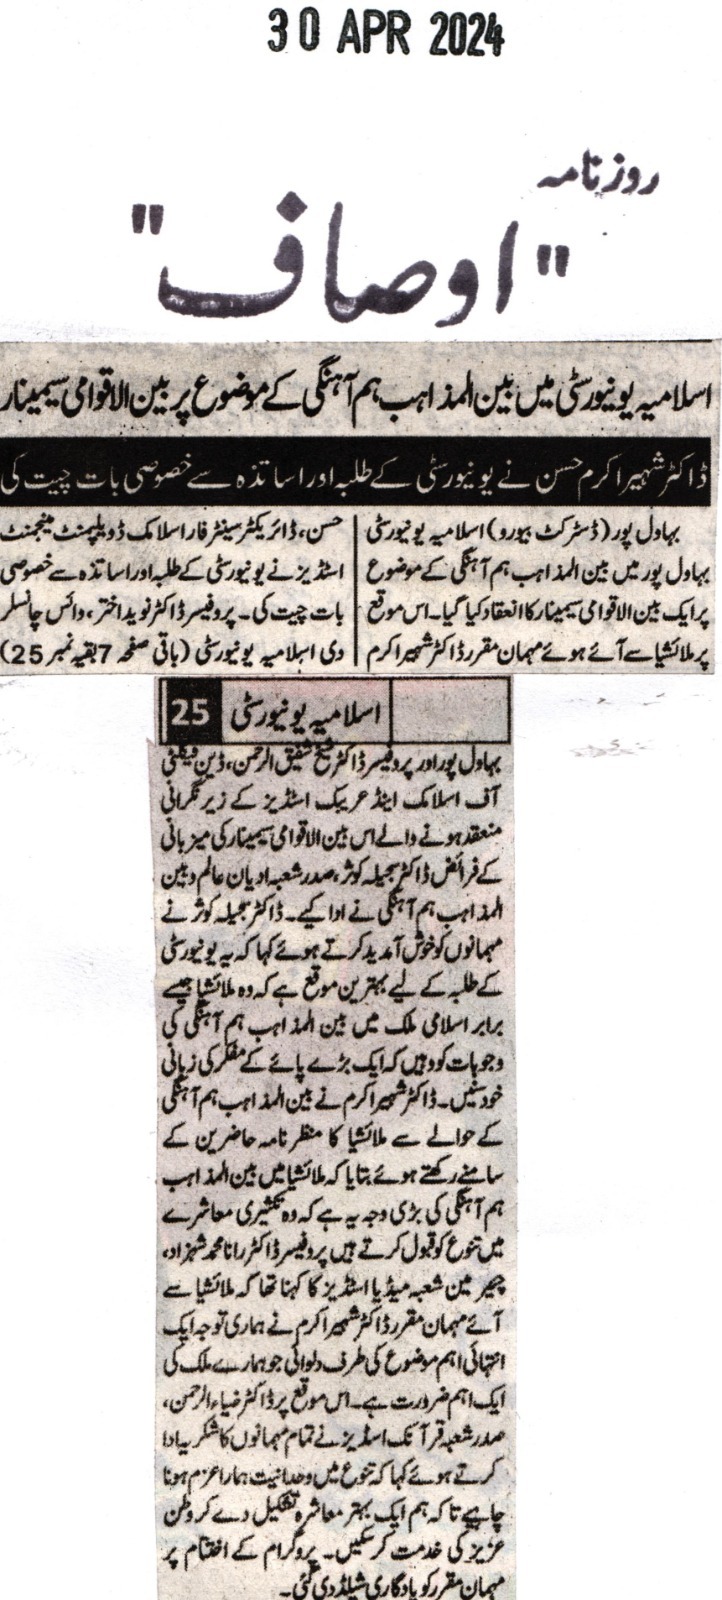 30 APR 2024
روزنامہ
"اوصاف"
اسلامیہ یونیورسٹی میں بین المذاہب ہم آہنگی کے موضوع پر بین الاقوامی سیمینار
ڈاکٹر شہیر اکرم حسن نے یونیورسٹی کے طلبہ اور اساتذہ سے خصوصی بات چیت کی
بہاول پور (ڈسٹرکٹ بیورو) اسلامیہ یونیورسٹی
بہاول پور میں بین المذاہب ہم آہنگی کے موضوع
پر ایک بین الاقوامی سیمینار کا انعقاد کیا گیا۔ اس موقع
پر ملائشیا سے آئے ہوئے مہمان مقرر ڈاکٹر شہیر اکرم
حسن، ڈائریکٹر سینٹر فار اسلامک ڈویلپمنٹ مینجمنٹ
اسٹڈیز نے یونیورسٹی کے طلبہ اور اساتذہ سے خصوصی
بات چیت کی۔ پروفیسر ڈاکٹر نوید اختر، وائس چانسلر
دی اسلامیہ یونیورسٹی (باقی صفحہ 7 بقیہ نمبر 25)
اسلامیہ یونیورسٹی 25
بہاول پور اور پروفیسر ڈاکٹر شیخ شفیق الرحمن، ڈین فیکلٹی
آف اسلامک اینڈ عریبک اسٹڈیز کے زیر نگرانی
منعقد ہونے والے اس بین الاقوامی سیمینار کی میزبانی
کے فرائض ڈاکٹر جمیلہ کوثر، صدر شعبہ ادیان عالم و بین
المذاہب ہم آہنگی نے ادا کیے۔ ڈاکٹر جمیلہ کوثر نے
مہمانوں کو خوش آمدید کرتے ہوئے کہا کہ یہ یونیورسٹی
کے طلبہ کے لیے بہترین موقع ہے کہ وہ ملائشیا جیسے
برابر اسلامی ملک میں بین المذاہب ہم آہنگی کی
وجوہات کو وہیں کہ ایک بڑے پائے کے مفکر کی زبانی
خود سنیں۔ ڈاکٹر شہیر اکرم نے بین المذاہب ہم آہنگی
کے حوالے سے ملائشیا کا منظر نامہ حاضرین کے
سامنے رکھتے ہوئے بتایا کہ ملائشیا میں بین المذاہب
ہم آہنگی کی بڑی وجہ یہ ہے کہ وہ تکثیری معاشرے
میں تنوع کو قبول کرتے ہیں پروفیسر ڈاکٹر رانا محمد شہزاد،
چیئر مین شعبہ میڈیا اسٹڈیز کا کہنا تھا کہ ملائشیا سے
آئے مہمان مقرر ڈاکٹر شہیر اکرم نے ہماری توجہ ایک
انتہائی اہم موضوع کی طرف دلوائی جو ہمارے ملک کی
ایک اہم ضرورت ہے۔ اس موقع پر ڈاکٹر ضیاء الرحمن،
صدر شعبہ قرآنک اسٹڈیز نے تمام مہمانوں کا شکریہ ادا
کرتے ہوئے کہا کہ تنوع میں وحدانیت ہمارا عزم ہونا
چاہیے تاکہ ہم ایک بہتر معاشرہ تشکیل دے کر وطن
عزیز کی خدمت کر سکیں۔ پروگرام کے اختتام پر
مہمان مقرر کو یادگاری شیلڈ دی گئی۔